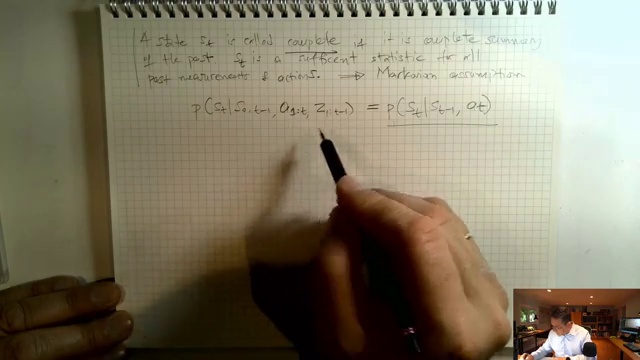 A state St is called complete if it is complete summary
of the past St is a sufficient statistic for all
past measurements & actions. ⟹ Markovian assumption
p(St|S0:t-1, a1:t, Z1:t-1) = p(St|St-1, at)